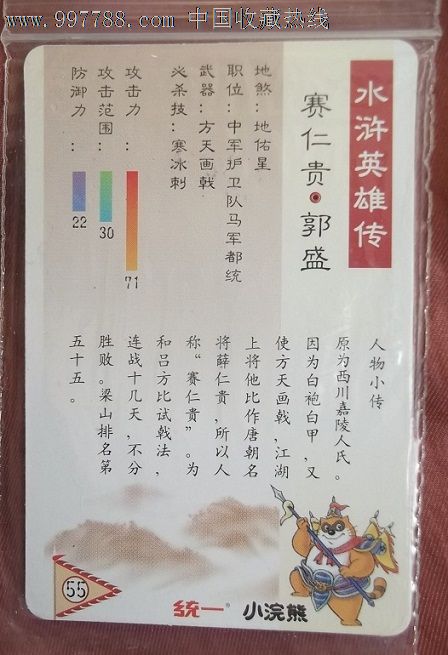 www.997788.com 中国收藏热线
水浒英雄传
赛仁贵·郭盛
地煞：地佑星
职位：中军护卫队马军都统
武器：方天画戟
必杀技：寒冰刺
攻击力：
71
攻击范围：
30
防御力：
22
人物小传
原为西川嘉陵人氏。
因为白袍白甲，又
使方天画戟，江湖
上将他比作唐朝名
将薛仁贵，所以人
称“赛仁贵”。为
和吕方比试戟法，
连战十几天，不分
胜败。梁山排名第
五十五。
55
统一® 小浣熊